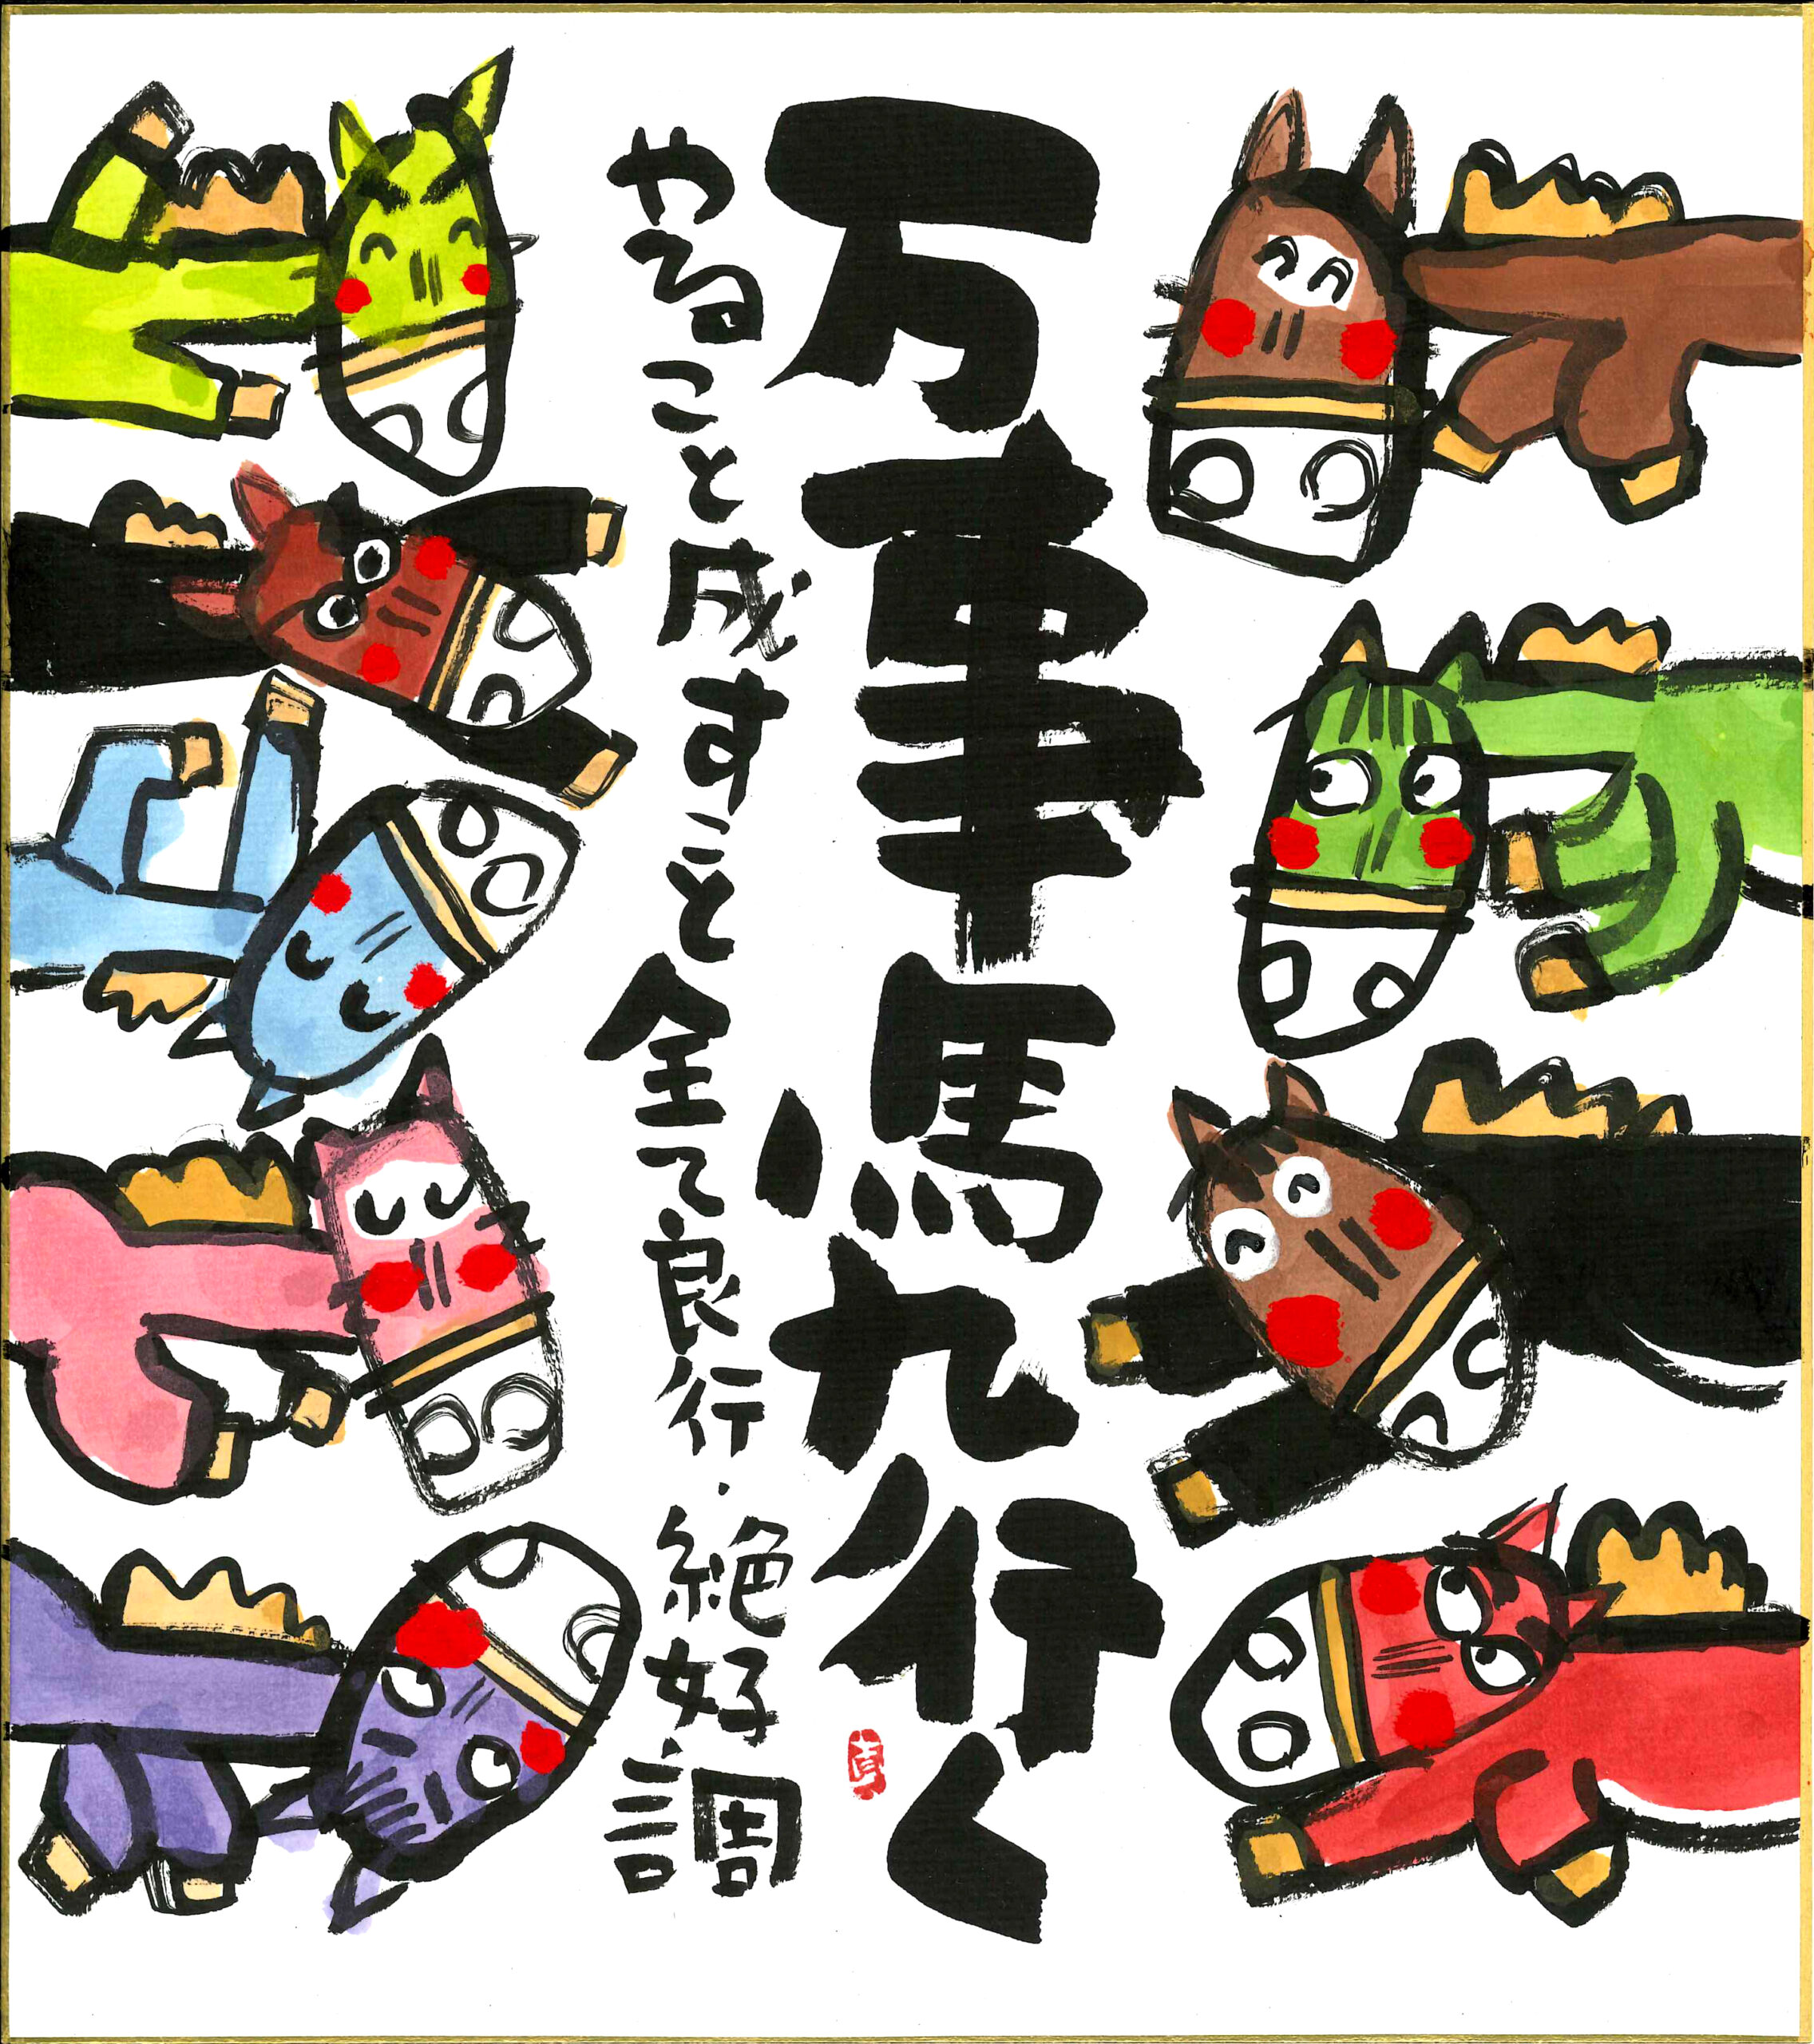 万事馬九行く
やること成すこと全て良行・絶好調
貞